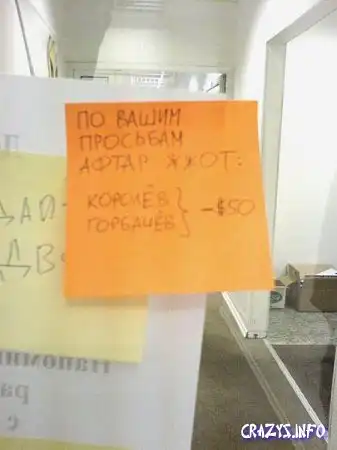 ПО ВАШИМ
ПРОСЬБАМ
АФТАР ЖЖОТ:
КОРОЛЁВ
ГОРБАЧЁВ } -$50
ДАП
ДВ
Напомин
ра
с
CRAZYS.INFO